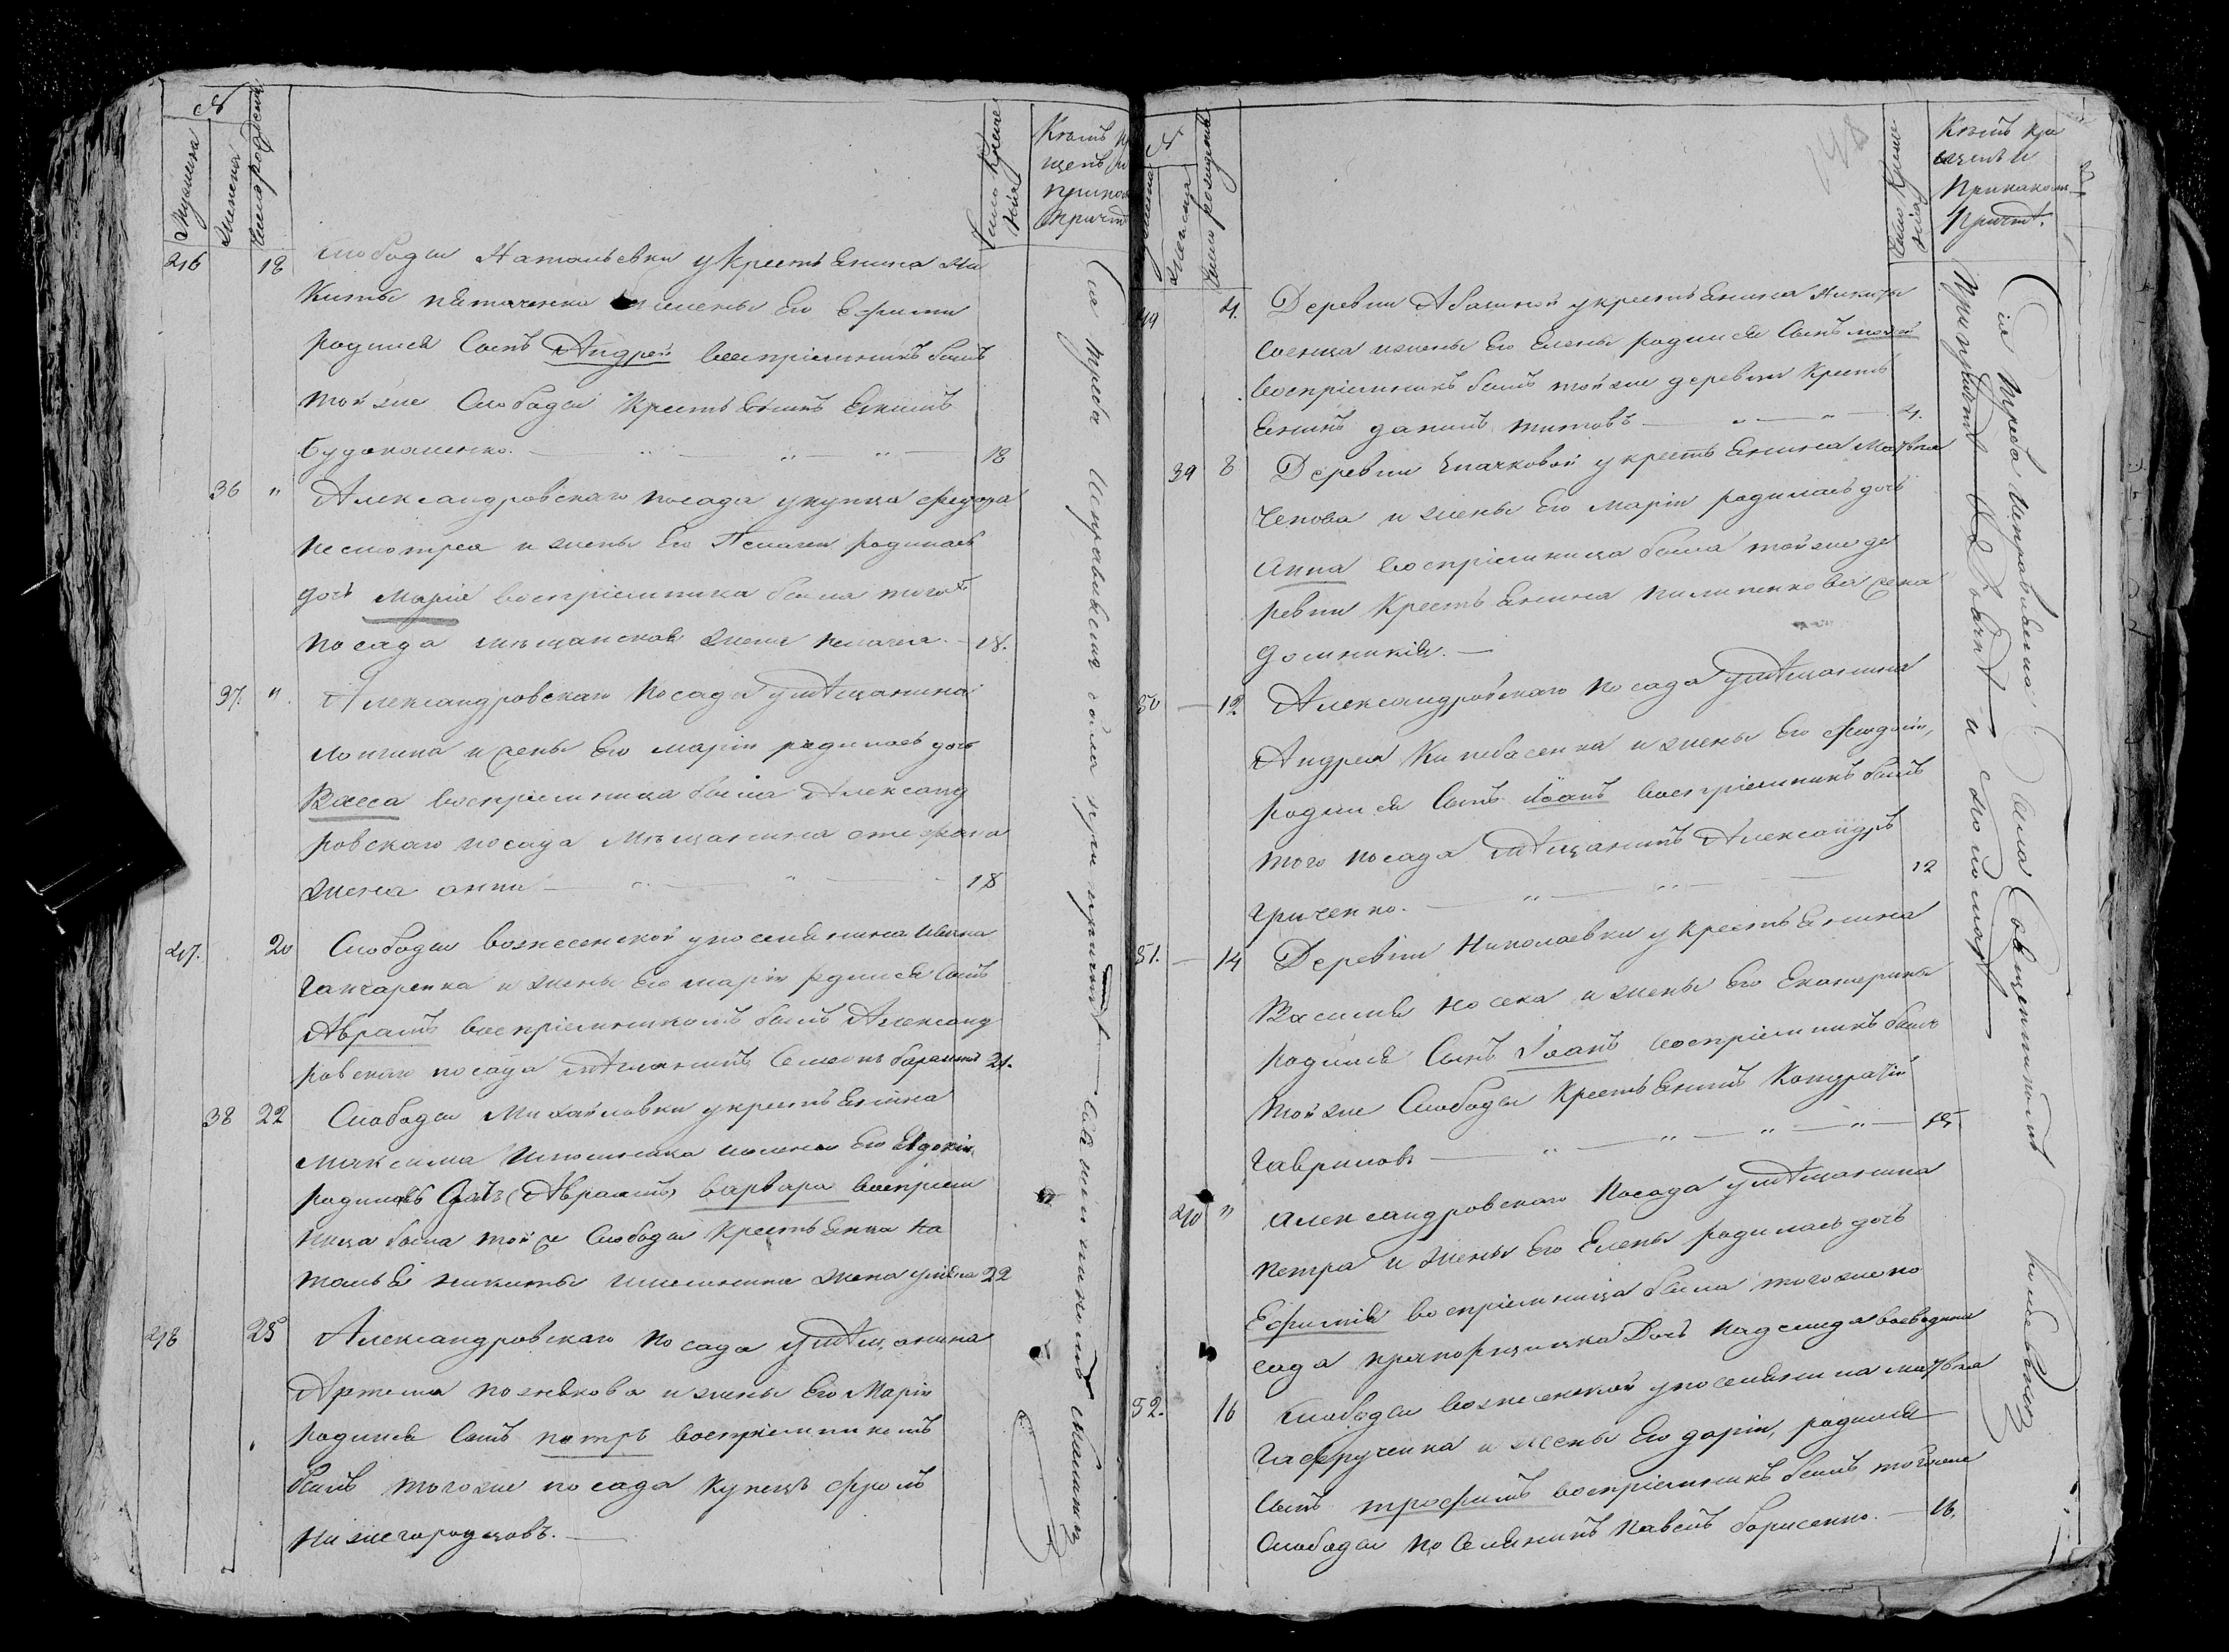 №
Мужеска
Женска
Число рождения
Число Креще
нія
Кѣмъ
щенъ
46 18 слободы Натальевки у Крестьянина Ни
киты пятаченка и жены Его Ефиміи
родился Сынъ Андрей воспріемникъ былъ
той же Слободы Крестьянинъ Екимъ
Будоколенко. 18
36 " Александровскаго посада у купца Федора
несмотрея и жены Его Пелагеи родилась
дочь Марія воспріемника была тогожъ
посада мѣщанская жена пелагея. 18.
37. " Александровскаго посада у мѣщанина
лонгина и жены Его маріи родилась дочь
Васса воспріемница была Александ
ровскаго посада мѣщанина стефана
жена анна 18
47. 20 Слободы вознесенской у поселянина Ивана
ганчаренка и жены Его маріи родился Сынъ
Аврамъ воспріемникомъ былъ Александ
ровскаго посада мѣщанинъ Семенъ 21.
38 22 Слободы Михайловки у крестьянина
максима и жены Его Евдокіи
родилась Дочь (Аврамъ) варвара воспріем
ница была той же Слободы Крестьянка На
талья никиты жена 22
48 25 Александровскаго посада у мѣщанина
Артема познякова и жены Его Маріи
родился Сынъ петръ воспріемникомъ
былъ тогоже посада Купецъ фролъ
нижегородцовъ.
Сія треба Исправляема была при причтѣ Священникомъ
№
Женска
Число рожденія
148
Число Креще
нія
Кѣмъ кре
щенъ и
при каком
причт.
49 4. Деревни Абашной у крестьянина Никиты
и жены Его Елены родился Сынъ
воспріемникъ былъ той же деревни Кресть
янинъ данилъ титовъ 4.
39 8 Деревни у крестьянина Матвѣя
чехова и жены Его маріи родилась дочь
Анна воспріемница была той же де
ревни Крестьянина пилипенкова жена
домникія.
50 12 Александровскаго посада у мѣщанина
Андрея и жены Его
родился Сынъ Иоанъ воспріемникъ былъ
того посада мѣщанинъ Александръ
гриченко. 12
51. 14 Деревни Николаевки у крестьянина
Василія носека и жены Его Екатерины
родился Сынъ Іоанъ воспріемникъ былъ
той же Слободы Крестьянинъ Кондратій
гавриловъ 15
40 " Александровскаго посада у мѣщанина
петра и жены Его Елены родилась дочь
Ефимія воспріемница была тогоже по
сада прапорщика Дочь надежда
52. 16 Слободы вознесенской у поселянина матвѣя
и жены Его даріи, родился
Сынъ трофимъ воспріемникъ былъ тойже
Слободы поселянинъ павелъ борисенко. 16.
Сія треба Исправляема была Священникомъ
При причтѣ и